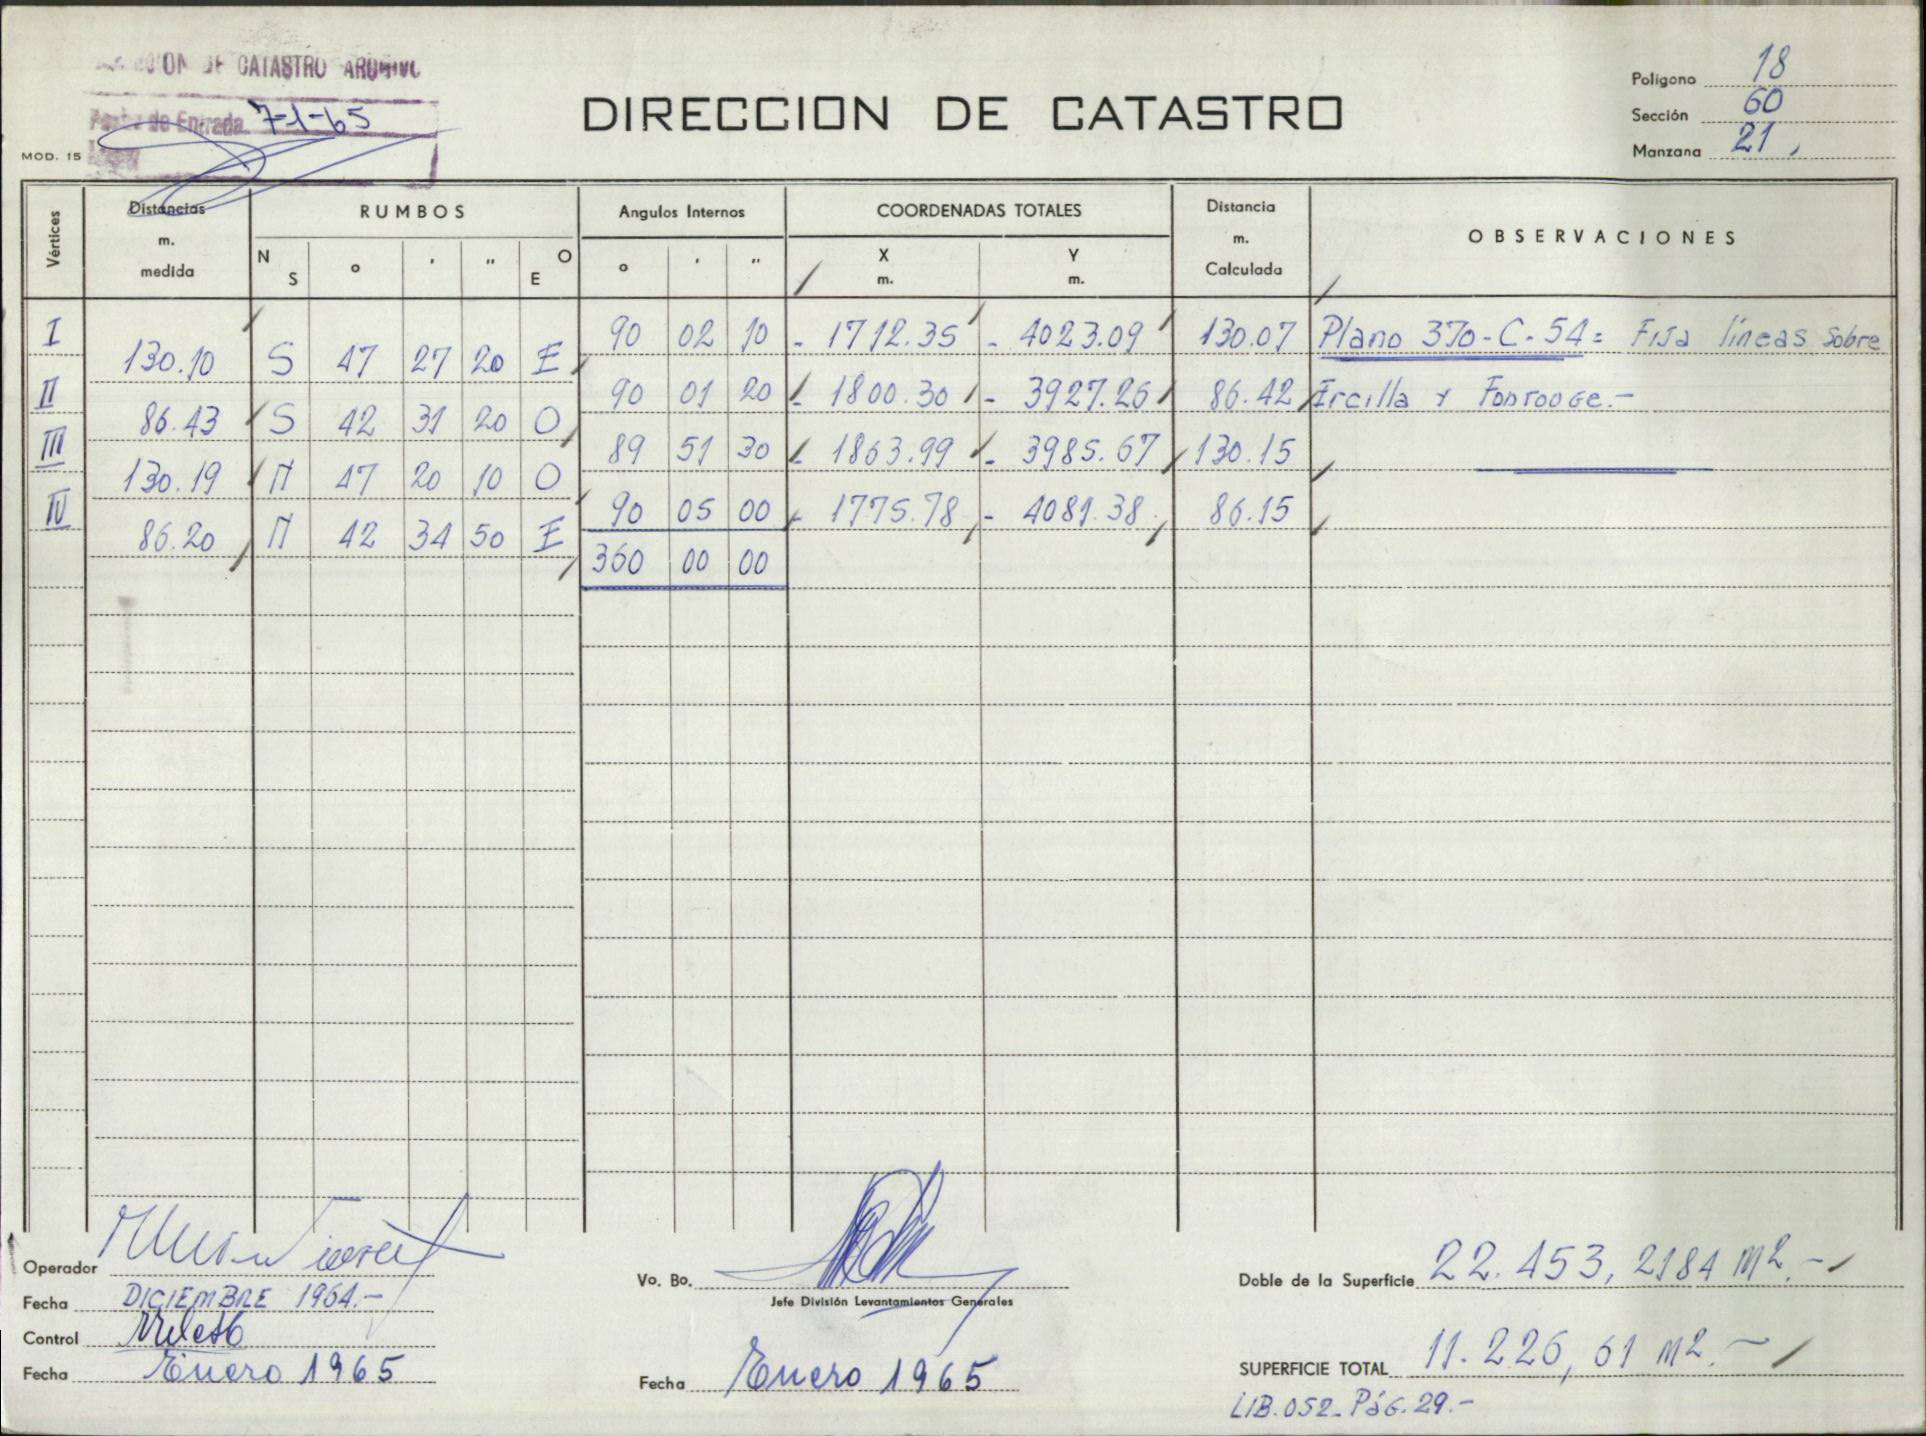 DE CATASTRO ARCHIVO
Fecha de Entrada 7-1-65
MOD. 15
DIRECCION DE CATASTRO
Polígono 18
Sección 60
Manzana 21.
Vértices
Distancias m. medida
RUMBOS
N S ° ' " O E
Angulos Internos
° ' "
COORDENADAS TOTALES
X m. Y m.
Distancia m. Calculada
OBSERVACIONES
I 90 02 10 - 1712.35 - 4023.09 130.07 Plano 370-C-54= Fija líneas sobre
130.10 S 47 27 20 E
II 90 01 20 - 1800.30 - 3927.26 86.42 Ercilla y Fonrouge.-
86.43 S 42 31 20 O
III 89 51 30 - 1863.99 - 3985.67 130.15
130.19 N 47 20 10 O
IV 90 05 00 - 1775.78 - 4081.38 86.15
86.20 N 42 34 50 E
360 00 00
Operador
Fecha DICIEMBRE 1964.-
Control
Fecha Enero 1965
Vo. Bo.
Jefe División Levantamientos Generales
Fecha Enero 1965
Doble de la Superficie 22.453,2184 m2.-
SUPERFICIE TOTAL 11.226,61 m2.-
LIB.052-Pág.29.-